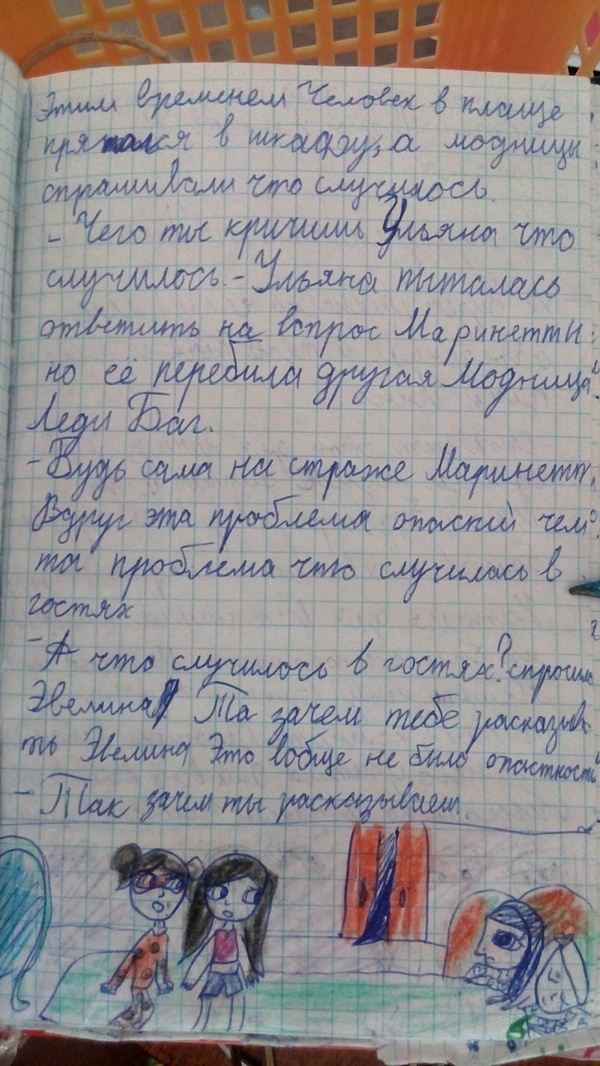 Этим временем Человек в плаще
прятался в шкафу, а модницы
спрашивали что случилось.
- Чего ты кричишь Ульяна что
случилось. - Ульяна пыталась
ответить на впрос Маринетты
но её перебила другая Модница
Леди Баг.
- Будь сама на страже Маринетт,
Вдруг эта проблема опасней чем
та проблема что случилась в
гостях
- А что случилось в гостях? спросила
Эвелина Та зачем тебе расказыв
ть Эвелина Это вобще не было опастность
- Так зачем ты расказываеш